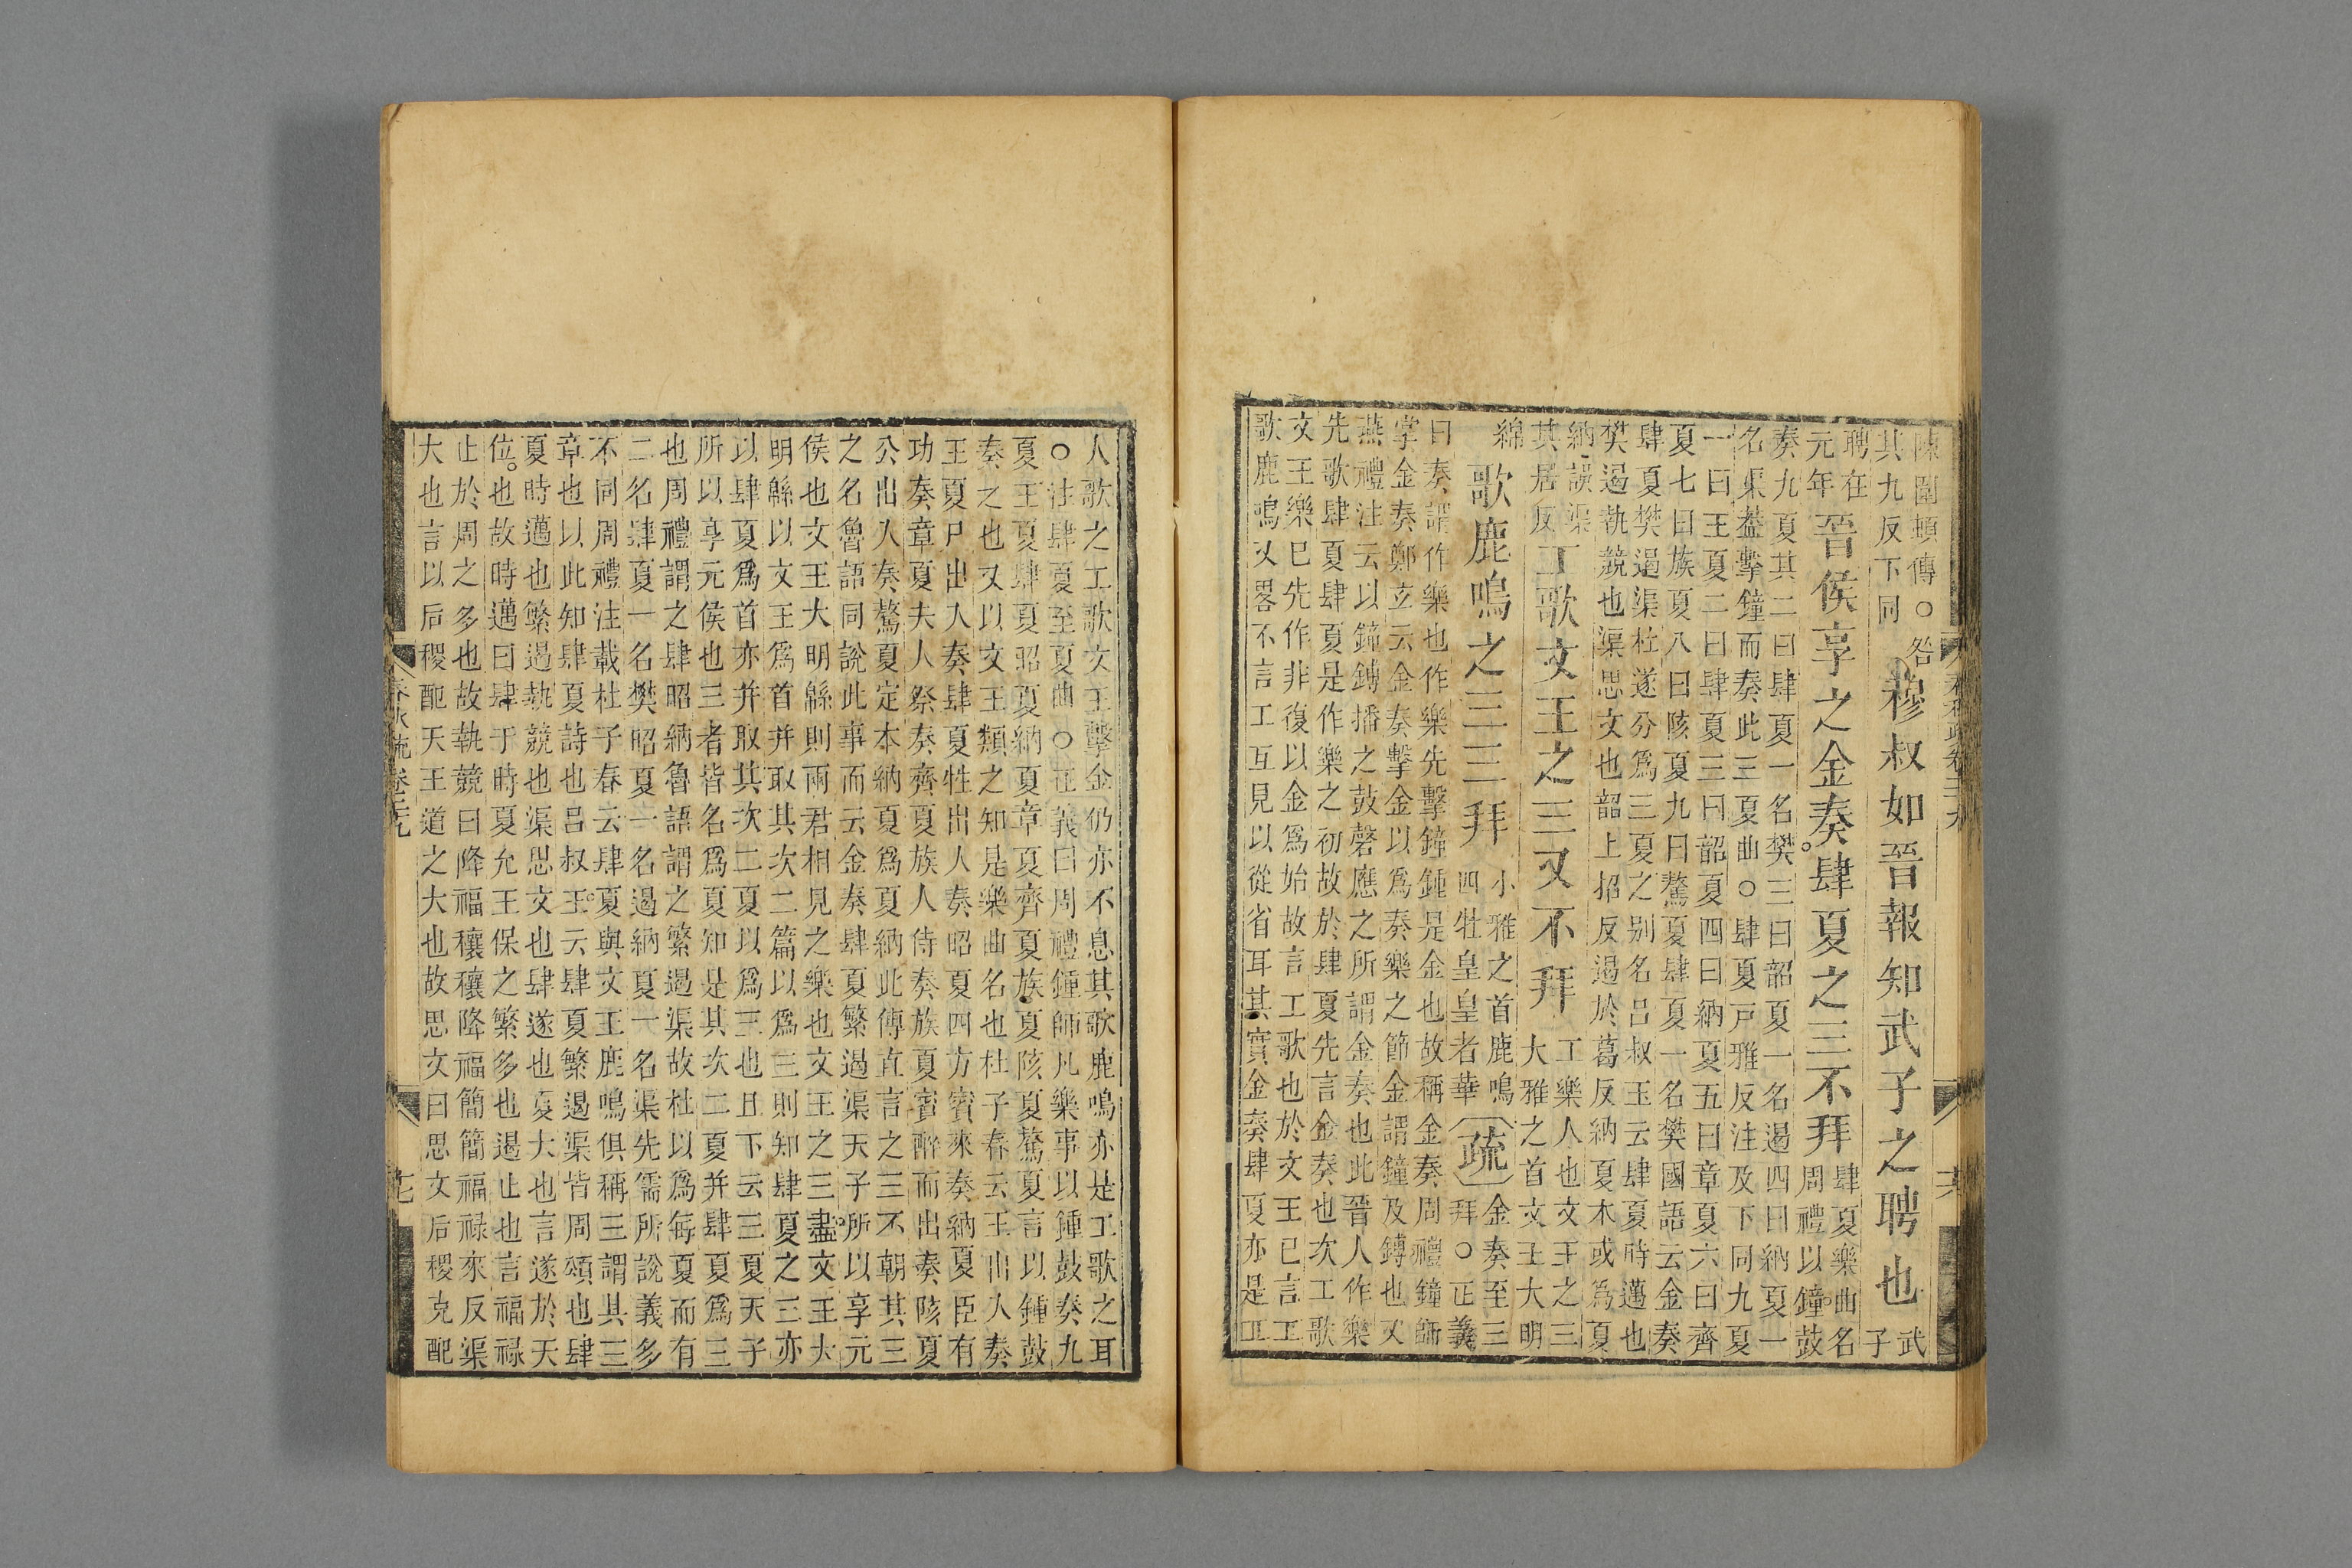 陳圍頓傳○咎
其九反下同
穆叔如晉報知武子之聘也
武
子
聘在
元年
晉侯享之金奏肆夏之三不拜
肆夏樂曲名
周禮以鐘鼓
奏九夏其二曰肆夏一名樊三曰韶夏一名遏四曰納夏一
名渠葢擊鐘而奏此三夏曲○肆夏戸雅反注及下同九夏
一曰王夏二曰肆夏三曰韶夏四曰納夏五曰章夏六曰齊
夏七曰族夏八曰陔夏九曰驁夏肆夏一名樊國語云金奏
肆夏樊遏渠杜遂分爲三夏之别名呂叔玉云肆夏時邁也
樊遏執競也渠思文也韶上招反遏於葛反納夏本或爲夏
納誤渠
其居反
工歌文王之三又不拜
工樂人也文王之三
大雅之首文王大明
綿
歌鹿鳴之三三拜
小雅之首鹿鳴
四牡皇皇者華
疏
金奏至三
拜○正義
曰奏謂作樂也作樂先擊鐘鍾是金也故稱金奏周禮鐘師
掌金奏鄭玄云金奏擊金以爲奏樂之節金謂鐘及鎛也又
燕禮注云以鐘鎛播之鼓磬應之所謂金奏也此晉人作樂
先歌肆夏肆夏是作樂之初故於肆夏先言金奏也次工歌
文王樂已先作非復以金爲始故言工歌也於文王已言工
歌鹿鳴又畧不言工互見以從省耳其實金奏肆夏亦是工
人歌之工歌文王擊金仍亦不息其歌鹿鳴亦是工歌之耳
○注肆夏至夏曲○正義曰周禮鍾師凡樂事以鍾鼓奏九
夏王夏肆夏昭夏納夏章夏齊夏族夏陔夏驁夏言以鍾鼓
奏之也又以文王類之知是樂曲名也杜子春云王出人奏
王夏尸出人奏肆夏牲出人奏昭夏四方賓來奏納夏臣有
功奏章夏夫人祭奏齊夏族人侍奏族夏賓醉而出奏陔夏
公出入奏驁夏定本納夏爲夏納此傳直言之三不朝其三
之名魯語同說此事而云金奏肆夏繁遏渠天子所以享元
侯也文王大明緜則兩君相見之樂也文王之三盡文王大
明緜以文王爲首并取其次二篇以爲三則知肆夏之三亦
以肆夏爲首亦并取其次二夏以爲三也且下云三夏天子
所以享元侯也三者皆名爲夏知是其次二夏并肆夏爲三
也周禮謂之肆昭納魯語謂之繁遏渠故杜以爲每夏而有
二名肆夏一名樊昭夏一名遏納夏一名渠先儒所說義多
不同周禮注載杜子春云肆夏與文王鹿鳴俱稱三謂其三
章也以此知肆夏詩也呂叔玉云肆夏繁遏渠皆周頌也肆
夏時邁也繁遏執競也渠思文也肆遂也夏大也言遂於天
位也故時邁曰肆于時夏允王保之繁多也遏止也言福祿
止於周之多也故執競曰降福穰穰降福簡簡福祿來反渠
大也言以后稷配天王道之大也故思文曰思文后稷克配